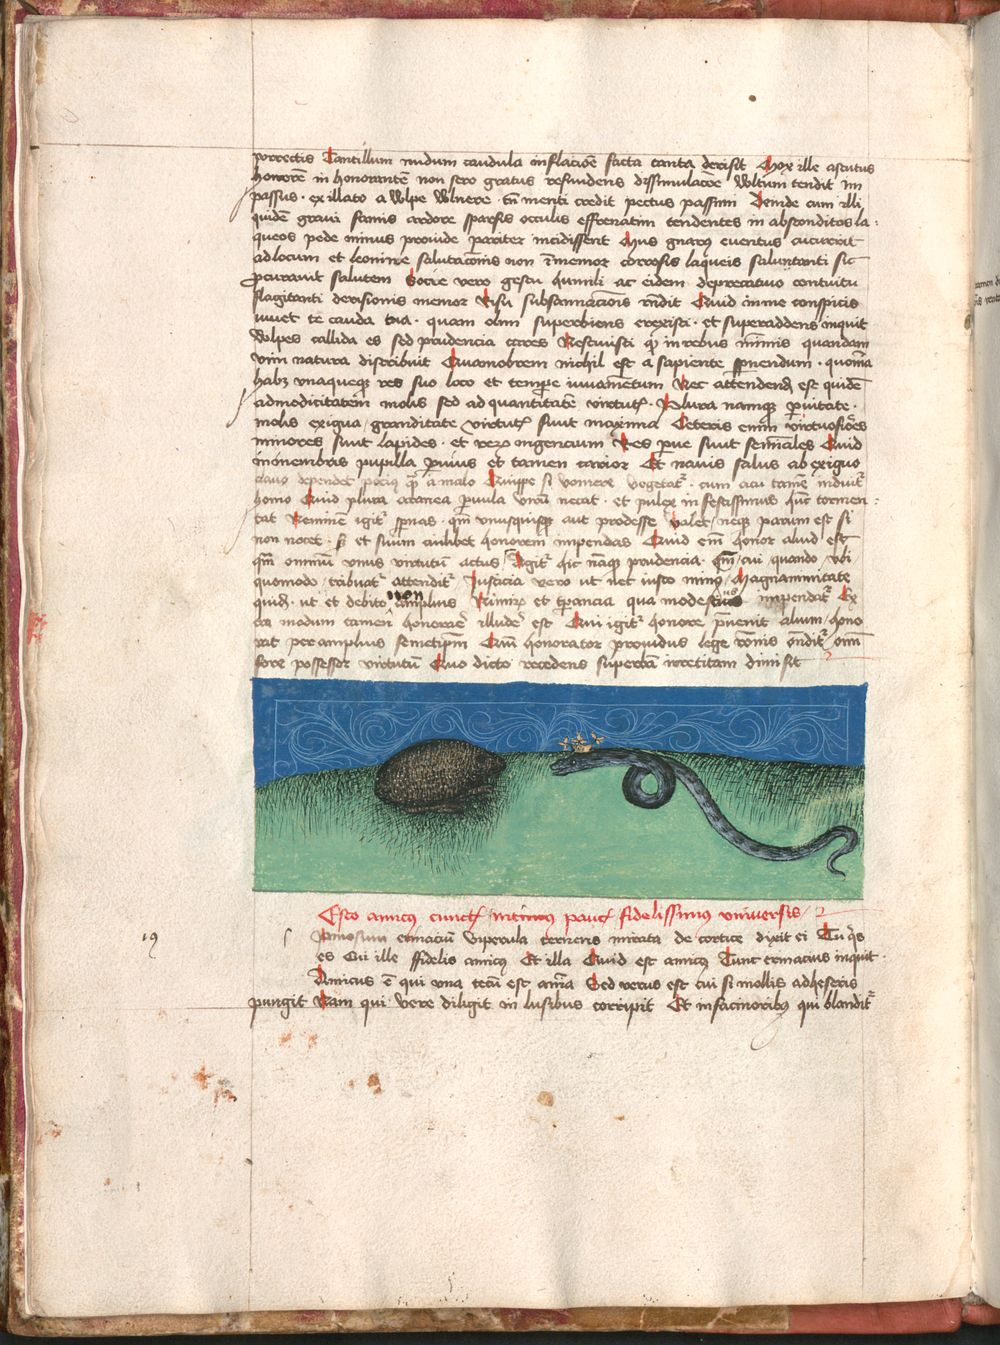 porrectis Tantillum nudum caudula inflacione facta tanta derisit Mox ille astutus
honorem in honorantem non sero gratus refundens dissimulacione Vultum tendit im
passus · ex illato a Vulpe Vulnere · tn menti credit pectus passum Deinde cum illi
quidem gravi famis ardore sparsis occulis effrenatim tendentes in absconditos la-
queos pede minus provide pariter incidissent Mus gnarus eventus cucurrit
ad locum et leonine salutacionis non immemor corrosis laqueis saluntanti sic
procuravit salutem Socie vero gestu humili ac eidem deprecativo contuitu
flagitanti derisionis memor Risu subsannacionis rndit Quid in me conspicis
iuvet te cauda tua · quam olim superbiens erexisti · et superaddens inquit
Volpes callida es sed prudencia cares Nescivisti qd in rebus minimis quandam
vim natura distribuit Quamobrem nichil est a sapiente spernendum · quoniam
habz unaqueqz res suo loco et tempore iuvamentum Nec attendend est quidem
ad modicitatem molis sed ad quantitatem virtutis · Plura namqz parvitate ·
molis exigua granditate virtutis sunt maxima Ceteris enim virtuosiores
minores sunt lapides · et ingencium Res parve sunt seminales Quid
in membris pupilla parvius et tamen carior Et navis salus ab exiguo
clavo dependet pocius quam a malo Quippe si vomere vegetatur · cum acu tamen induitur
homo Quid plura aranea parvula virum necat · et pulex infestissimus tormen-
tat Neminem igitur spernas · qm unusquisqz aut prodesse valet neqz parum est si
non nocet · et suum cuilibet honorem impendas Quid em honor aliud est
qm omnium unus virtutum actus Agitur hic namqz prudencia · qm cui quando ubi
quomodo tribuatur attenditur Iusticia vero ut nec iusto minus Magnanimitate
quidem · ut et debito non amplius et tperancia qua modestius impendatur Ex
tra modum tamen honorare illudere est Qui igitur honore prevenit alium hono
rat per amplius semetipsum Qum honorator providus lege racionis ondit omn
fore possessor virtutum Quo dicto recedens superbam irretitam dimisit
Esto amicus cunctis intimus paucis fidelissimus universis
Spinosum ermacium Viperula cernens mirata de cortice dixit ei Tu quis
es Cui ille ffidelis amicus Et illa Quid est amicus Tunc ermacius inquit ·
Amicus e qui una tecum est anima Sed verus est cui si mollis adheseris
pungit Nam qui vere diligit in lusibus corripit Et in facinoribus qui blanditur
19